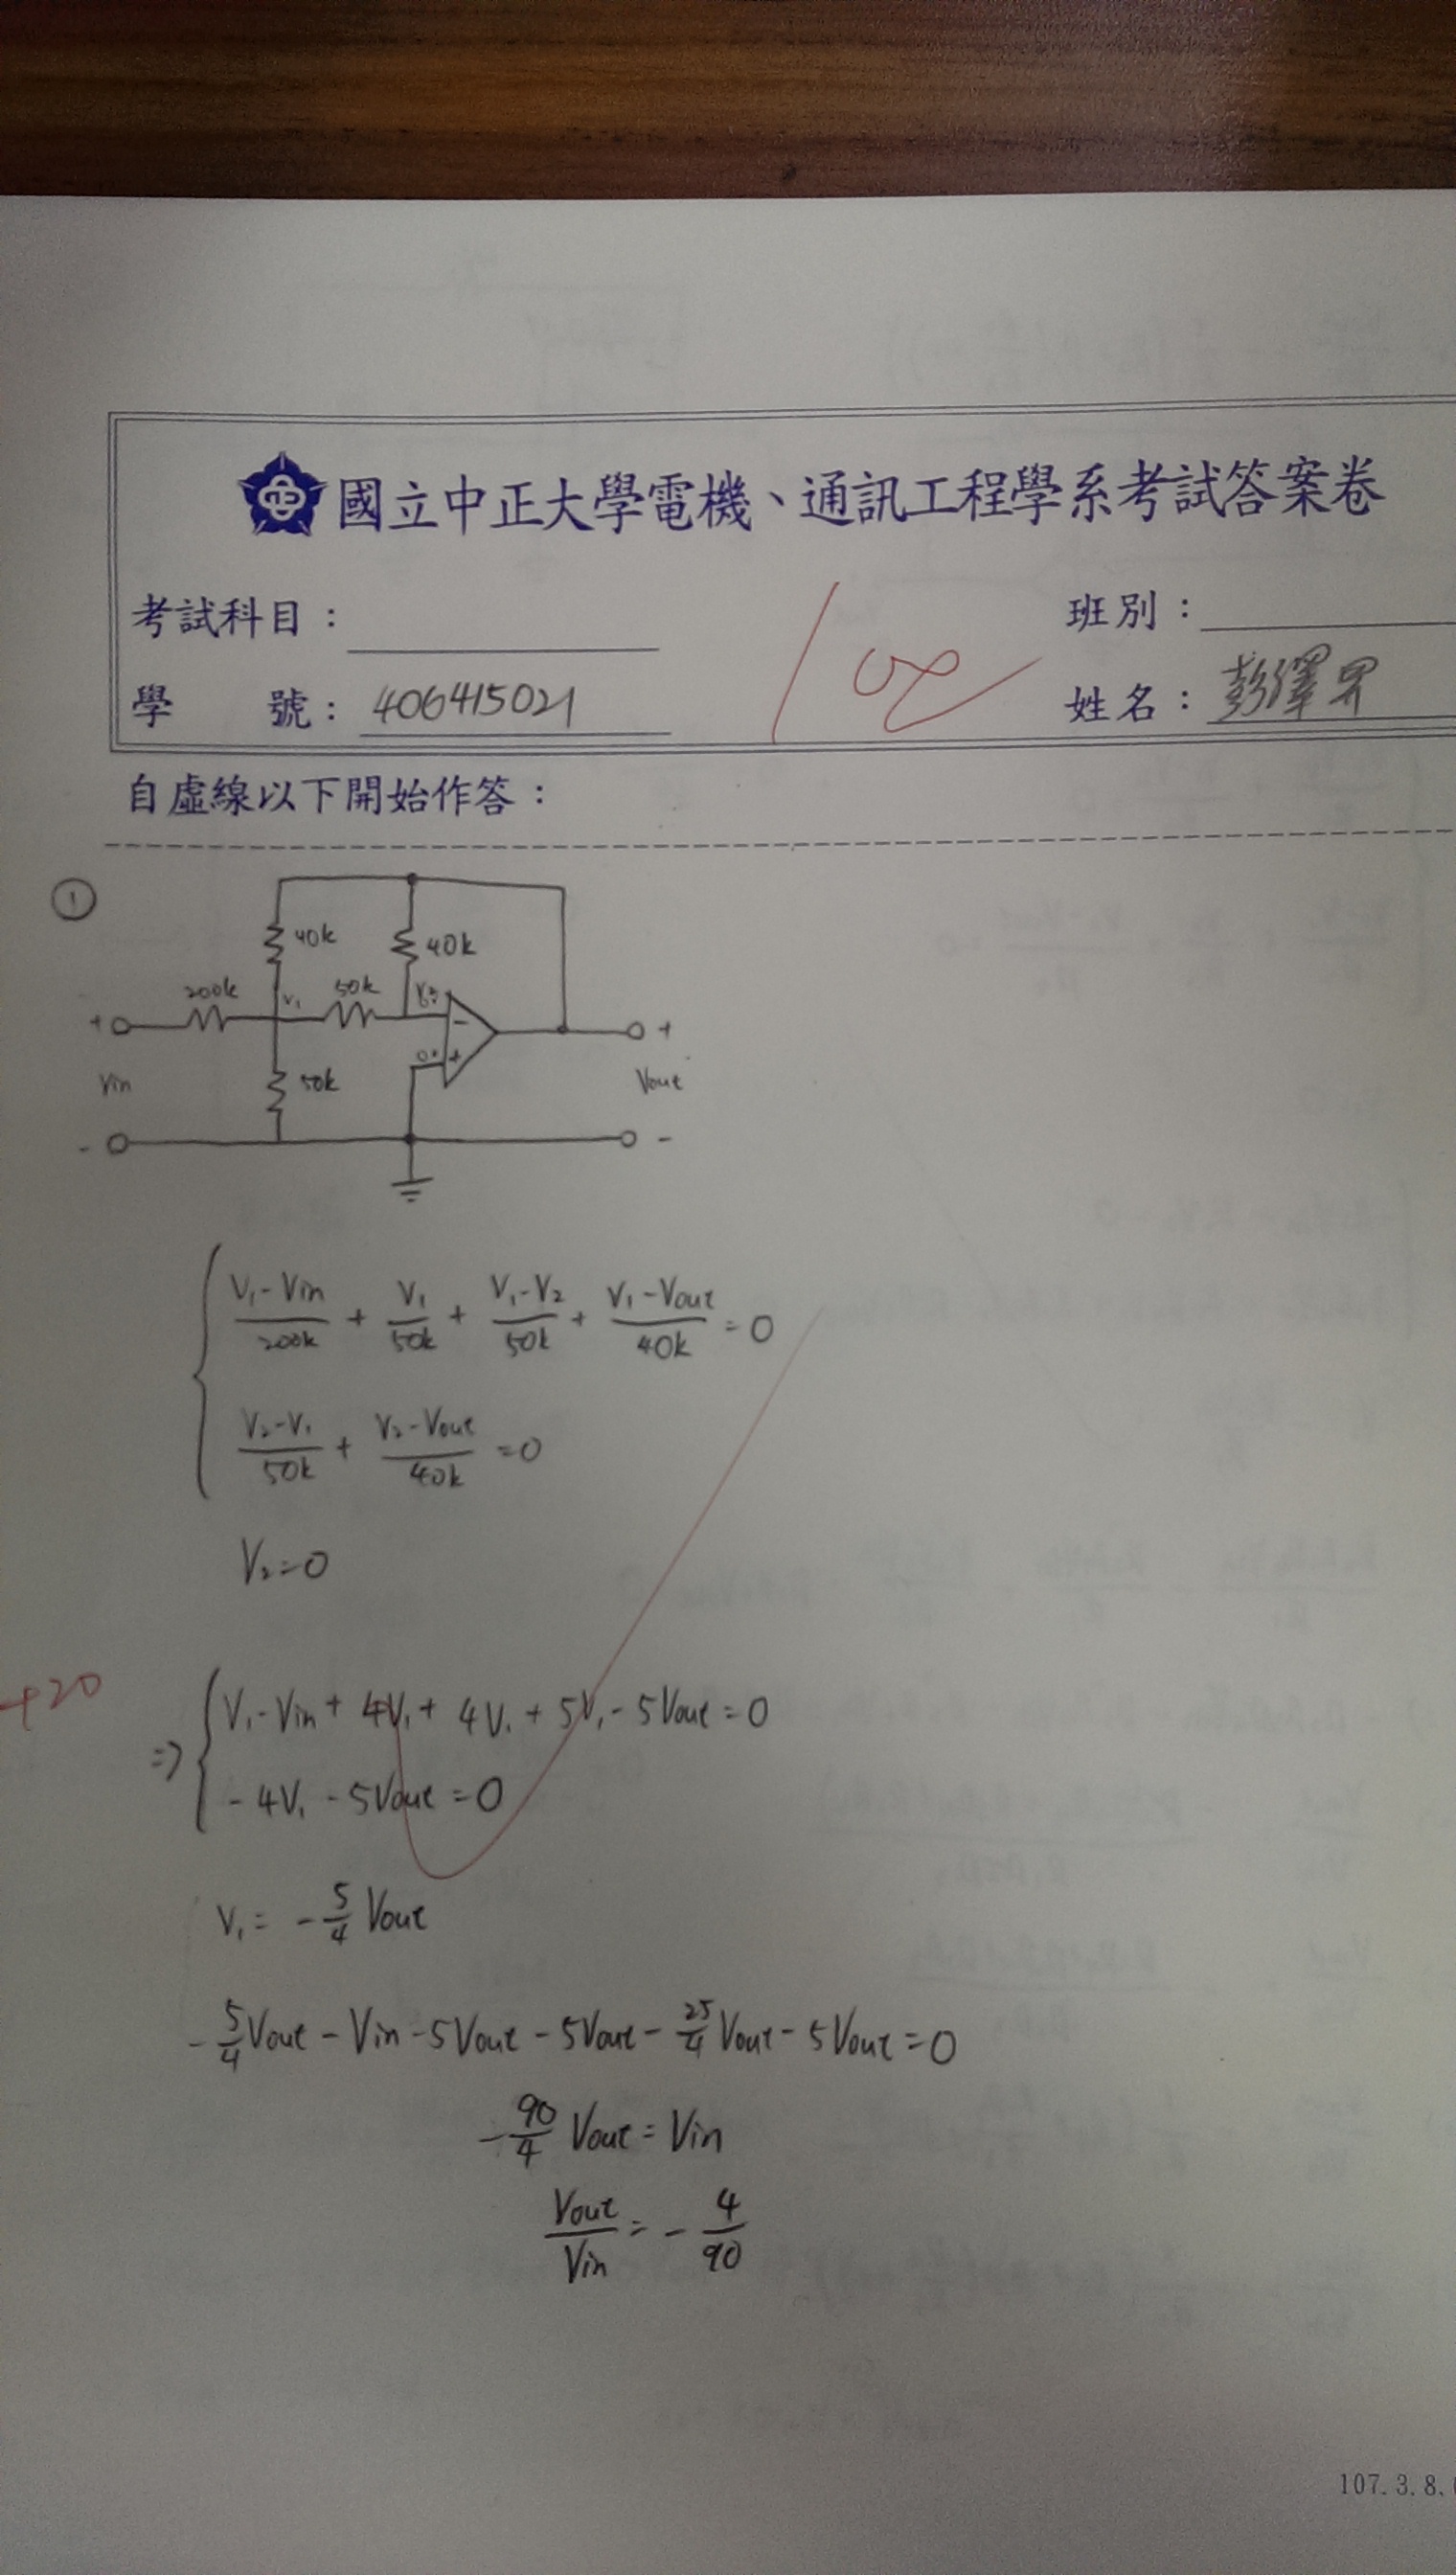 國立中正大學電機、通訊工程學系考試答案卷
考試科目：
班別：
100
學 號：406415021
姓名：彭澤
自虛線以下開始作答：
①
40k
40k
200k
V₁
50k
V₂
+
-
+
0V
+
Vin
50k
Vout
-
-
(V₁-Vin)/200k + V₁/50k + (V₁-V₂)/50k + (V₁-Vout)/40k = 0
(V₂-V₁)/50k + (V₂-Vout)/40k = 0
V₂=0
+20
⇒ V₁-Vin + 4V₁ + 4V₁ + 5V₁ - 5Vout = 0
-4V₁ - 5Vout = 0
V₁ = -5/4 Vout
-5/4 Vout - Vin - 5Vout - 5Vout - 25/4 Vout - 5Vout = 0
-90/4 Vout = Vin
Vout/Vin = -4/90
107.3.8.